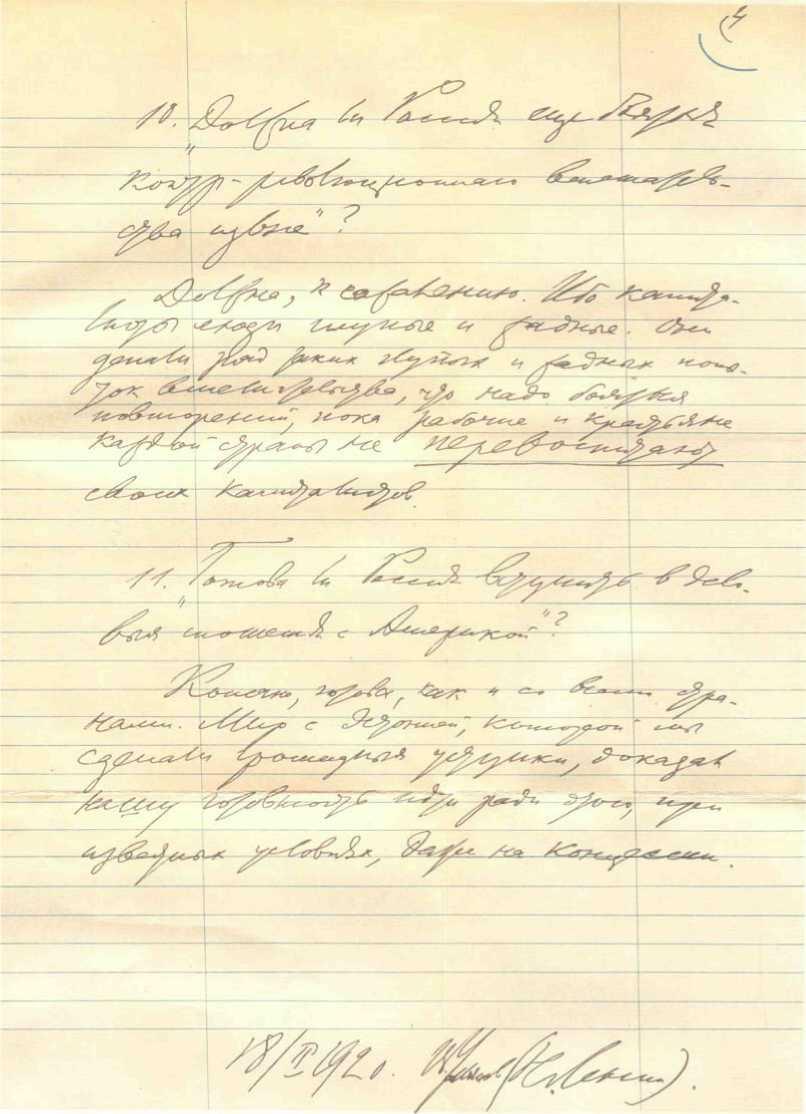 4
10. „Должна ли Россия еще бояться
контр-революционного вмешатель-
ства извне"?
Должна, к сожалению. Ибо капита-
листы люди глупые и жадные. Они
делали ряд таких глупых и жадных попы-
ток вмешательства, что надо бояться
повторений, пока рабочие и крестьяне
каждой страны не перевоспитают
своих капиталистов.
11. „Готова ли Россия вступить в дело-
выя сношения с Америкой"?
Конечно, готова, как и со всеми стра-
нами. Мир с Эстонией, которой мы
сделали громадныя уступки, доказал
нашу готовность идти ради этого, при
известных условиях, даже на концессии.
18/II 1920. В. Ульянов (Н. Ленин).